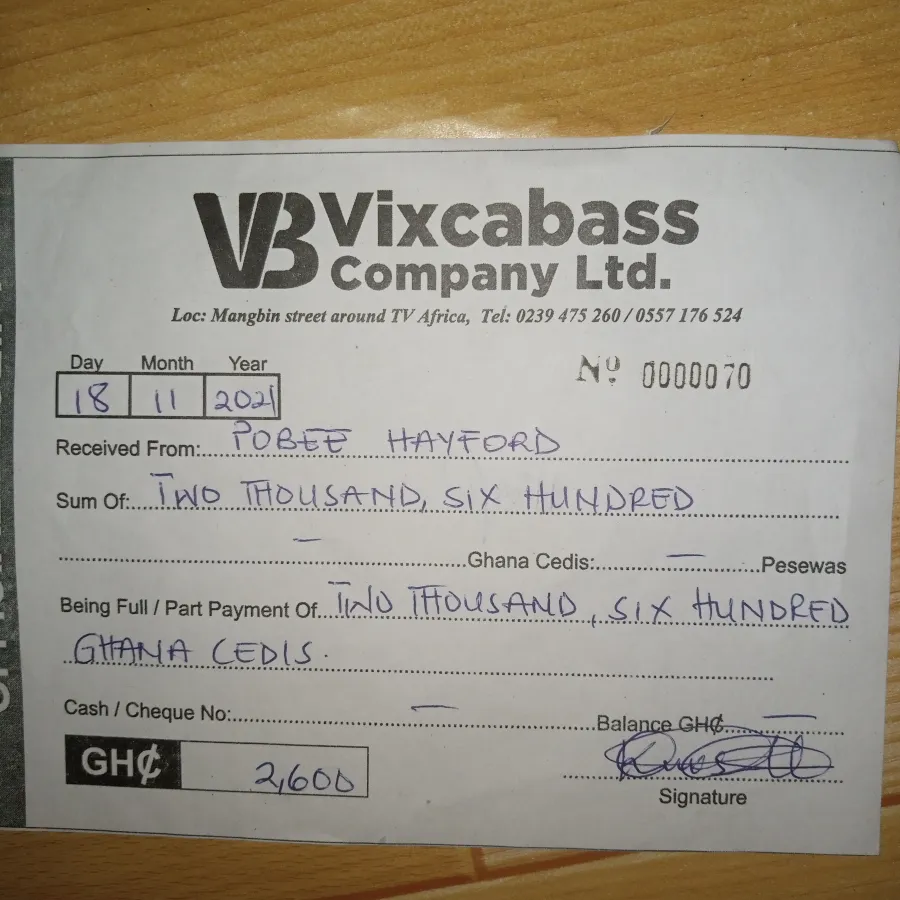 VB Vixcabass
Company Ltd.
Loc: Mangbin street around TV Africa, Tel: 0239 475 260 / 0557 176 524
Day Month Year
18 11 2021
Nº 0000070
Received From: POBEE HAYFORD
Sum Of: TWO THOUSAND, SIX HUNDRED
— Ghana Cedis: — Pesewas
Being Full / Part Payment Of TWO THOUSAND, SIX HUNDRED
GHANA CEDIS.
Cash / Cheque No: — Balance GH₵ —
GH₵ 2,600
Signature